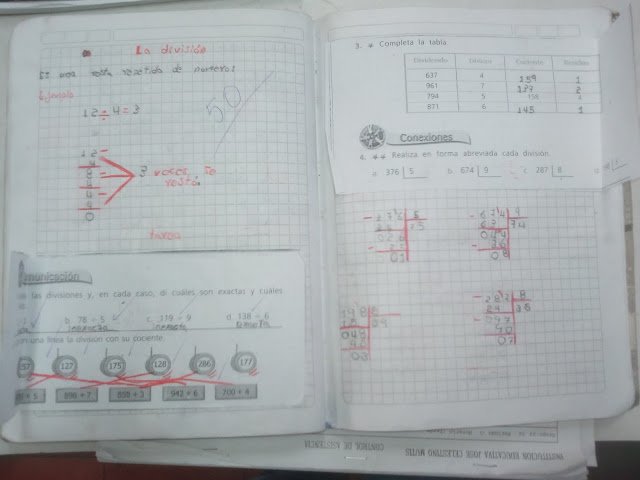 La división
Es una resta repetida de numeros
Ejemplo
12 ÷ 4 = 3
12 -
4
8 -
4
4 -
4
0
3 veces se
restó
50
tarea
municación
las divisiones y, en cada caso, di cuáles son exactas y cuáles
b. 78 ÷ 5 c. 119 ÷ 9 d. 138 ÷ 6
Inexacta Exacta
con una línea la división con su cociente.
127 175 128 286 177
896 ÷ 7 858 ÷ 3 942 ÷ 6 700 ÷ 4
3. * Completa la tabla.
Dividendo Divisor Cociente Residuo
637 4 159 1
961 7 137 2
794 5 158 4
871 6 145 1
Conexiones
4. ** Realiza en forma abreviada cada división.
a. 376 5 b. 674 9 c. 287 8
- 376 5
35 75
026
- 25
01
- 674 9
63 74
044
- 36
08
- 287 8
24 35
- 047
40
07
048
03
CONTROL DE ASISTENCIA
INSTITUCION EDUCATIVA JOSE CELESTINO MUTIS